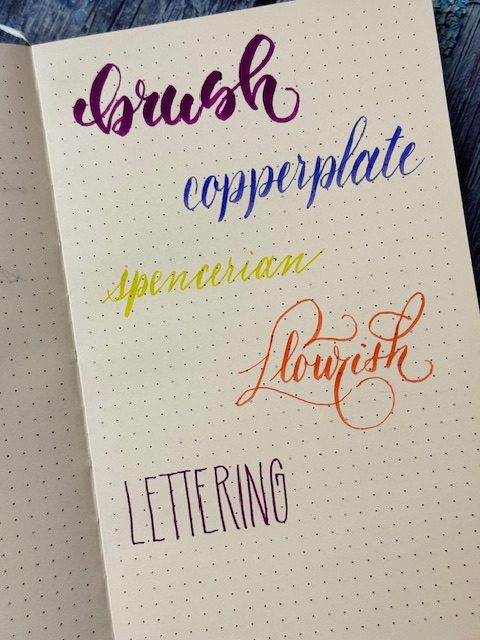 brush
copperplate
spencerian
flourish
LETTERING